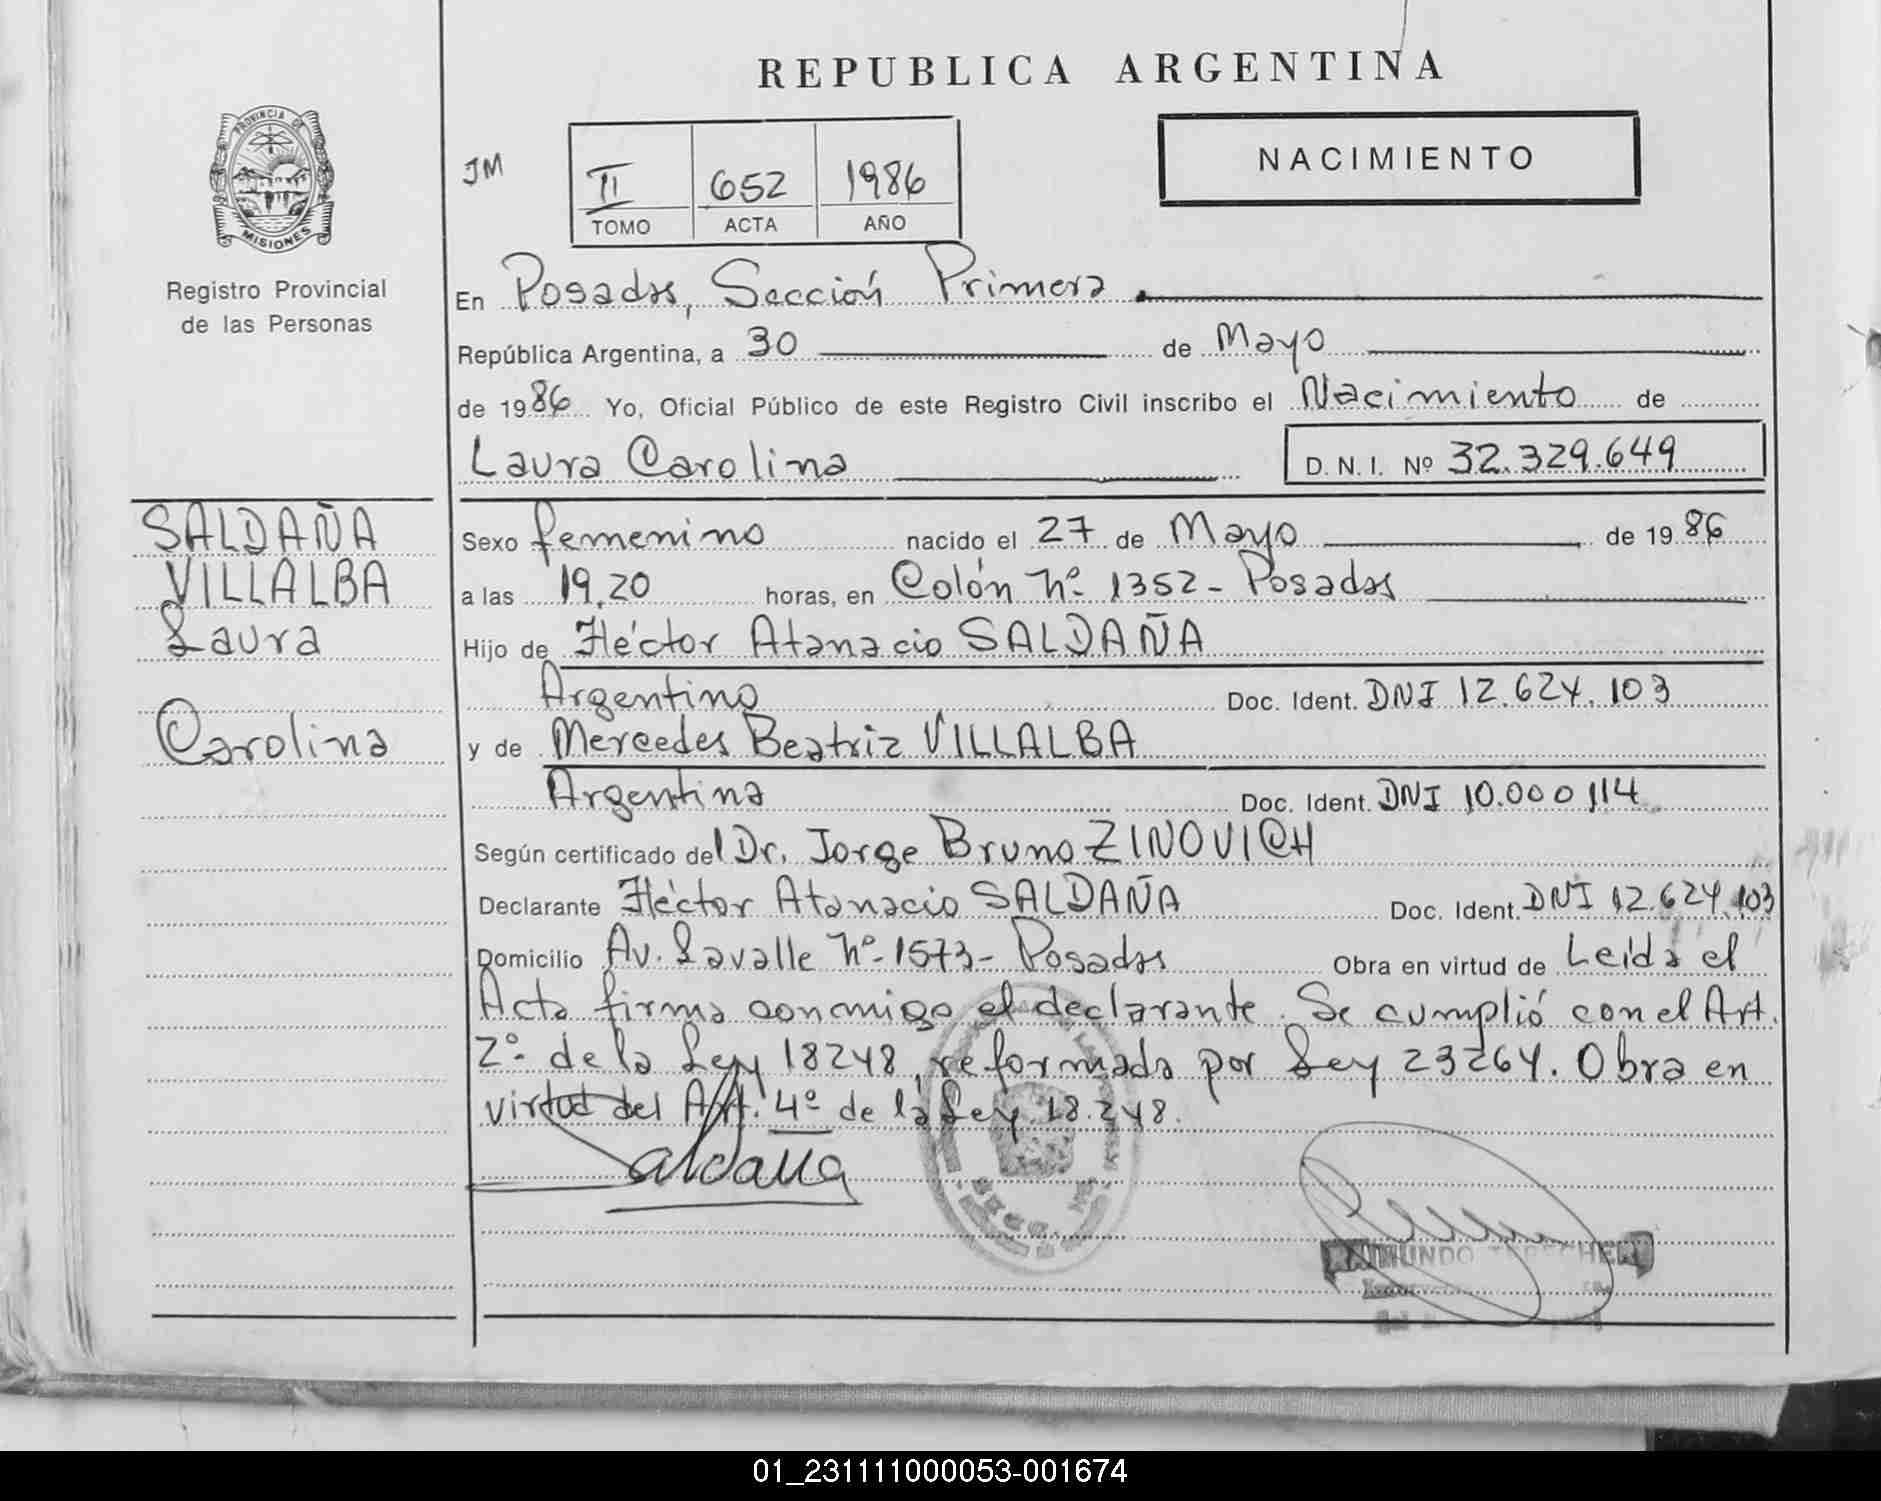 REPUBLICA ARGENTINA
PROVINCIA DE
MISIONES
Registro Provincial
de las Personas
JM
II 652 1986
TOMO ACTA AÑO
NACIMIENTO
En Posadas, Sección Primera
República Argentina, a 30 de Mayo
de 1986 Yo, Oficial Público de este Registro Civil inscribo el Nacimiento de
Laura Carolina D.N.I. Nº 32.329.649
SALDAÑA
VILLALBA
Laura
Carolina
Sexo femenino nacido el 27 de Mayo de 1986
a las 19,20 horas, en Colón Nº 1352 - Posadas
Hijo de Héctor Atanacio SALDAÑA
Argentino Doc. Ident. DNI 12.624.103
y de Mercedes Beatriz VILLALBA
Argentina Doc. Ident. DNI 10.000114
Según certificado del Dr. Jorge Bruno ZINOVICH
Declarante Héctor Atanacio SALDAÑA Doc. Ident. DNI 12.624.103
Domicilio Av. Lavalle Nº 1573 - Posadas Obra en virtud de Leída el
Acta firma conmigo el declarante. Se cumplió con el Art.
2º de la Ley 18248, reformada por Ley 23264. Obra en
virtud del Art. 4º de la Ley 18.248.
Saldaña
RAIMUNDO
01_231111000053-001674